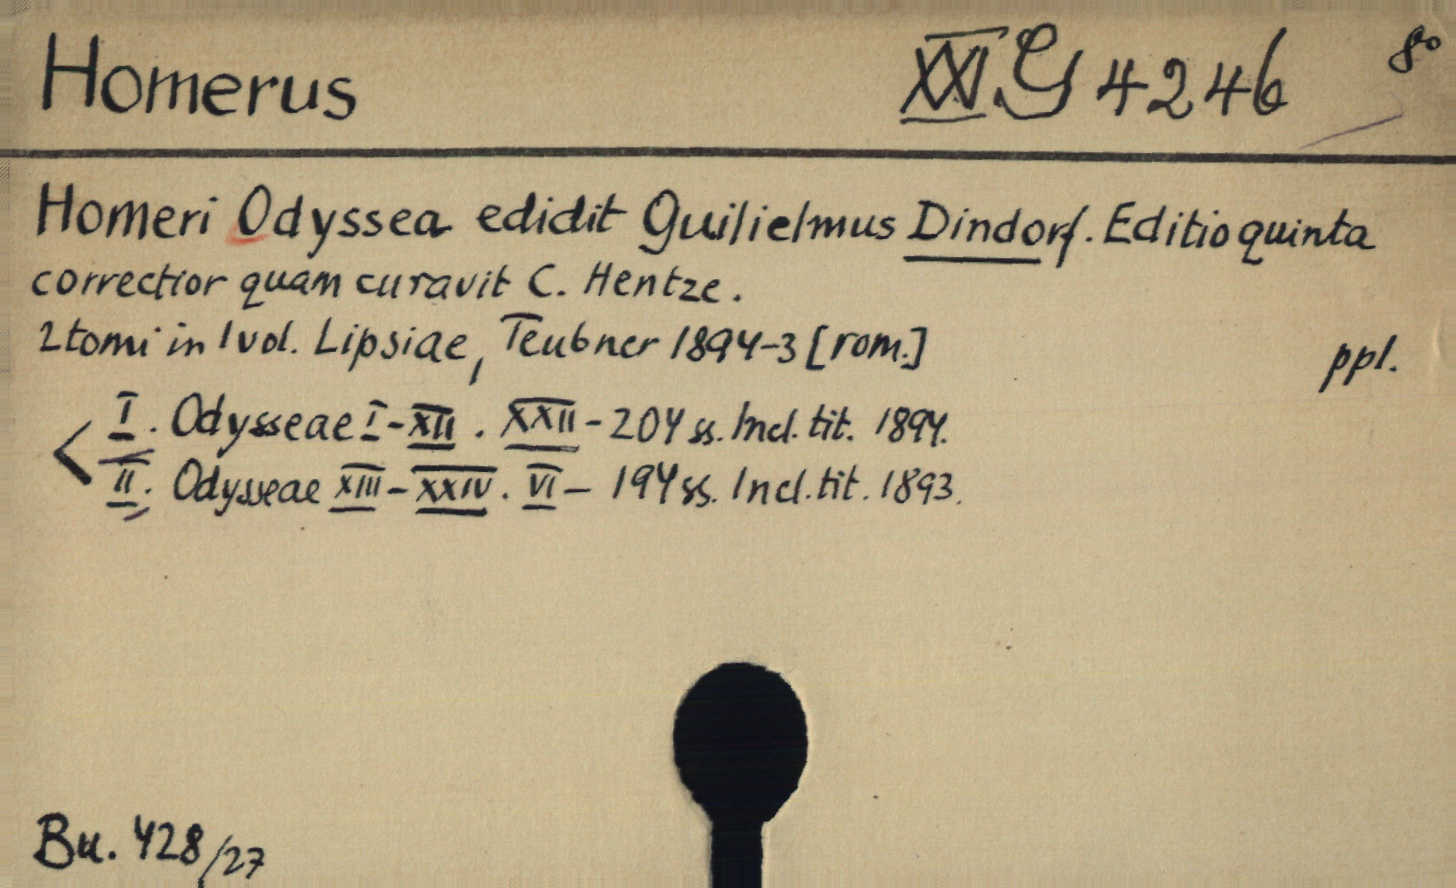 Homerus XXI.G 4246 8°
Homeri Odyssea edidit Guilielmus Dindorf. Editio quinta
correctior quam curavit C. Hentze.
2 tomi in 1 vol. Lipsiae, Teubner 1894-3 [rom.] ppl.
I. Odysseae I-XII. XXII-204 ss. Incl. tit. 1894.
II. Odysseae XIII-XXIV. VI- 194 ss. Incl. tit. 1893.
Bu. 428/27